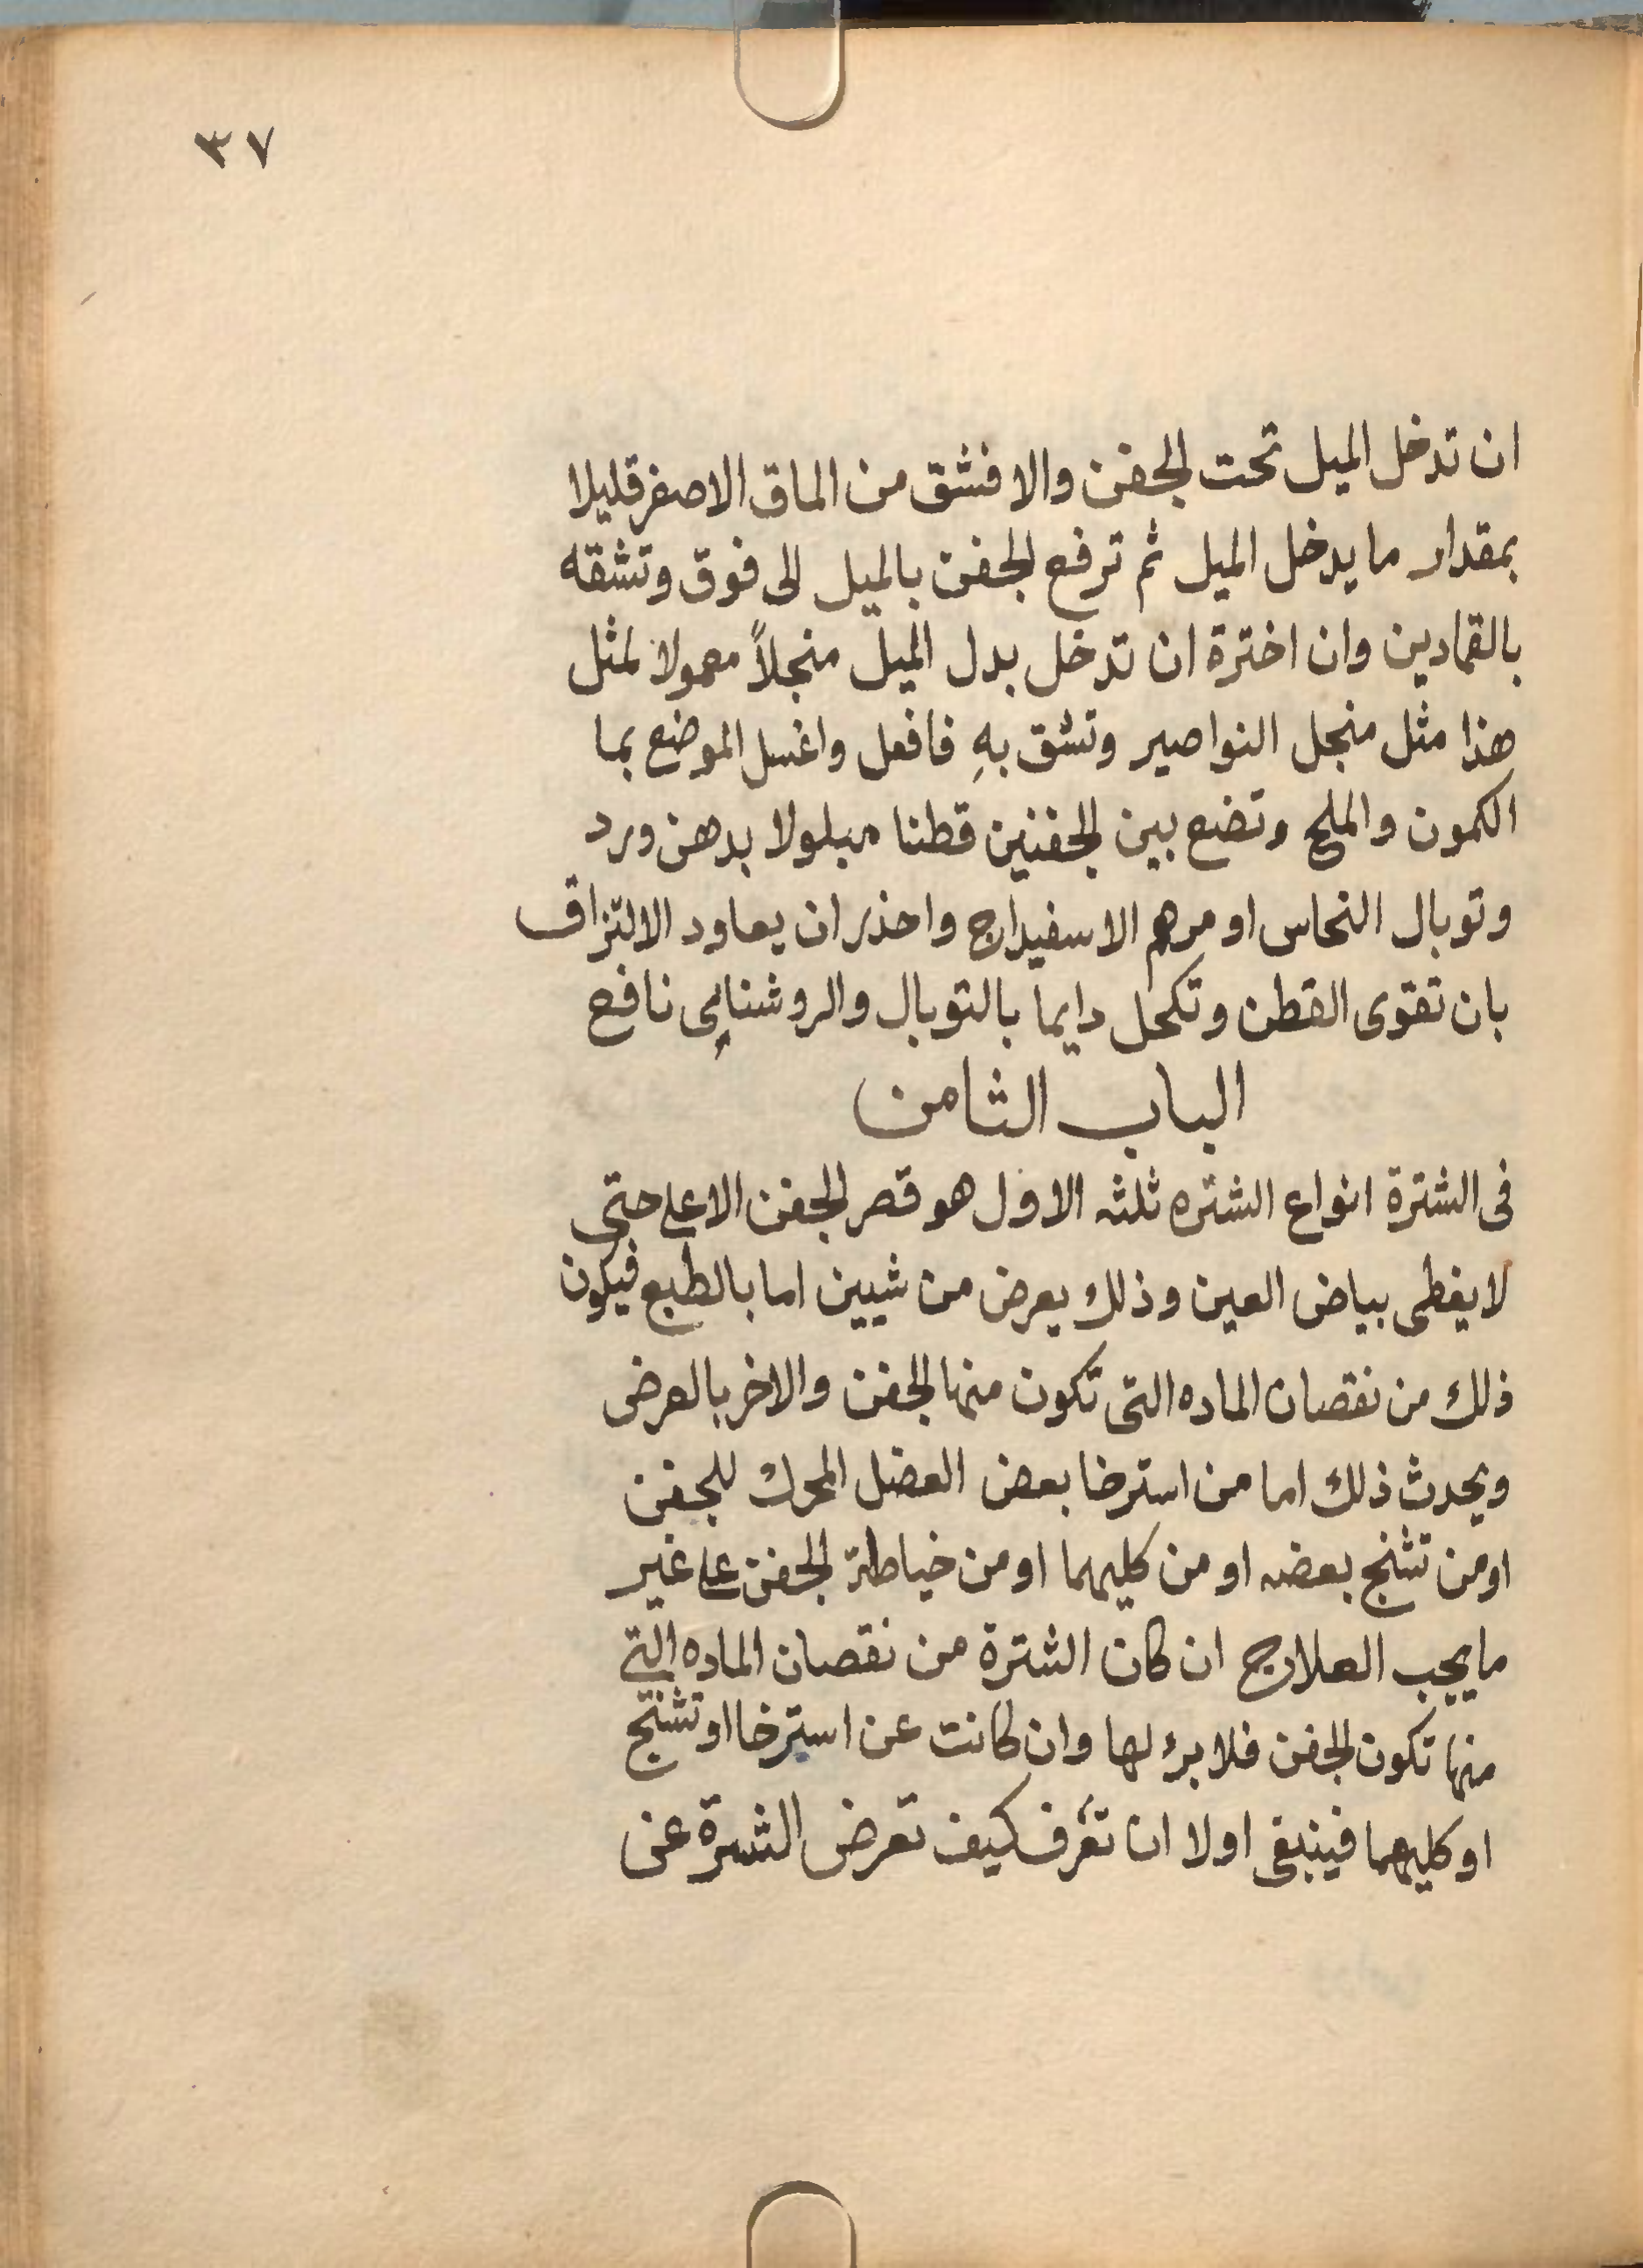 ٣٧
ان تدخل الميل تحت الجفن والا فشق من الماق الاصغر قليلا
بمقدار ما يدخل الميل ثم ترفع الجفن بالميل الى فوق وتشقه
بالقمادين وان اخترة ان تدخل بدل الميل منجلاً معمولا لمثل
هذا مثل منجل النواصير وتشق بهِ فافعل واغسل الموضع بما
الكمون والملح وتضع بين الجفنين قطنا مبلولا بدهن ورد
وتوبال النحاس او مرهم الاسفيداج واحذر ان يعاود الالتزاق
بان تقوى القطن وتكحل دايما بالتوبال والروشنايى نافع
الباب الثامن
فى الشترة انواع الشتره ثلثه الاول هو قصر الجفن الاعلى حتى
لا يغطى بياض العين وذلك يعرض من شيين اما بالطبع فيكون
ذلك من نقصان الماده التى تكون منها الجفن والاخر بالعرض
ويحدث ذلك اما من استرخا بعض العضل المحرك للجفن
او من تشنج بعضه او من كليهما او من خياطة الجفن على غير
ما يجب العلاج ان كان الشترة من نقصان الماده التى
منها تكون الجفن فلا برء لها وان كانت عن استرخا او تشنج
او كليهما فينبغى اولا ان تعرف كيف تعرض الشترة عن